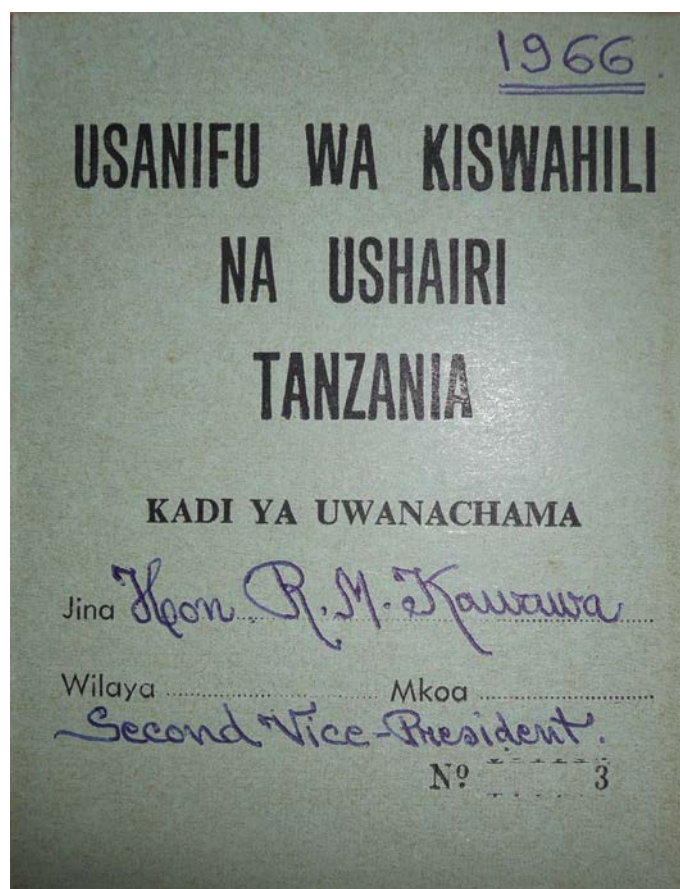 1966.
USANIFU WA KISWAHILI
NA USHAIRI
TANZANIA
KADI YA UWANACHAMA
Jina Hon. R. M. Kawawa
Wilaya .................... Mkoa ....................
Second Vice-President.
Nº 3